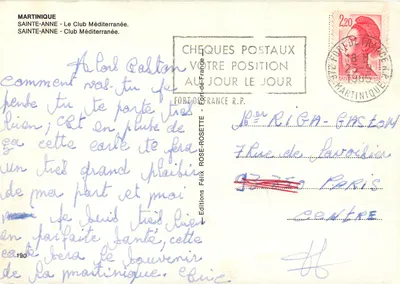 MARTINIQUE
SAINTE-ANNE - Le Club Méditerranée.
SAINTE-ANNE - Club Méditerranée.
Alors Gaston
comment vas-tu je
pense tu te porte très
bien ; Et en plus de
ça cette carte te fera
un très grand plaisir
de ma part et moi
je suis très bien
en parfaite santé, cette
carte sera le souvenir
de la martinique. Eric
F80
Editions Félix ROSE-ROSETTE - Fort-de-France
CHEQUES POSTAUX
VOTRE POSITION
AU JOUR LE JOUR
FORT DE FRANCE R.P.
FORT DE FRANCE R.P.
1985
MARTINIQUE
2,20
RIGA-GASTON
7 Rue de Lavoisier
PARIS
CENTRE